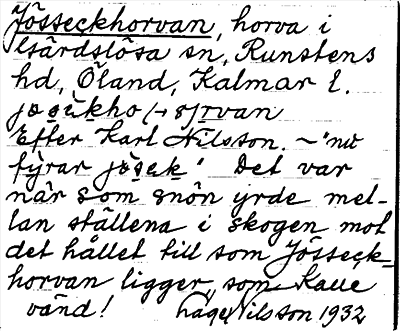 Jösseckhorvan, horva i
Gärdslösa sn, Runstens
hd, Öland, Kalmar l.
Efter Karl Nilsson. ~ "nu
fyrar jösek" Det var
när som snön yrde mel-
lan ställena i skogen mot
det hållet till som Jösseck-
horvan ligger, som Kalle
vänd! Låge Nilsson 1932